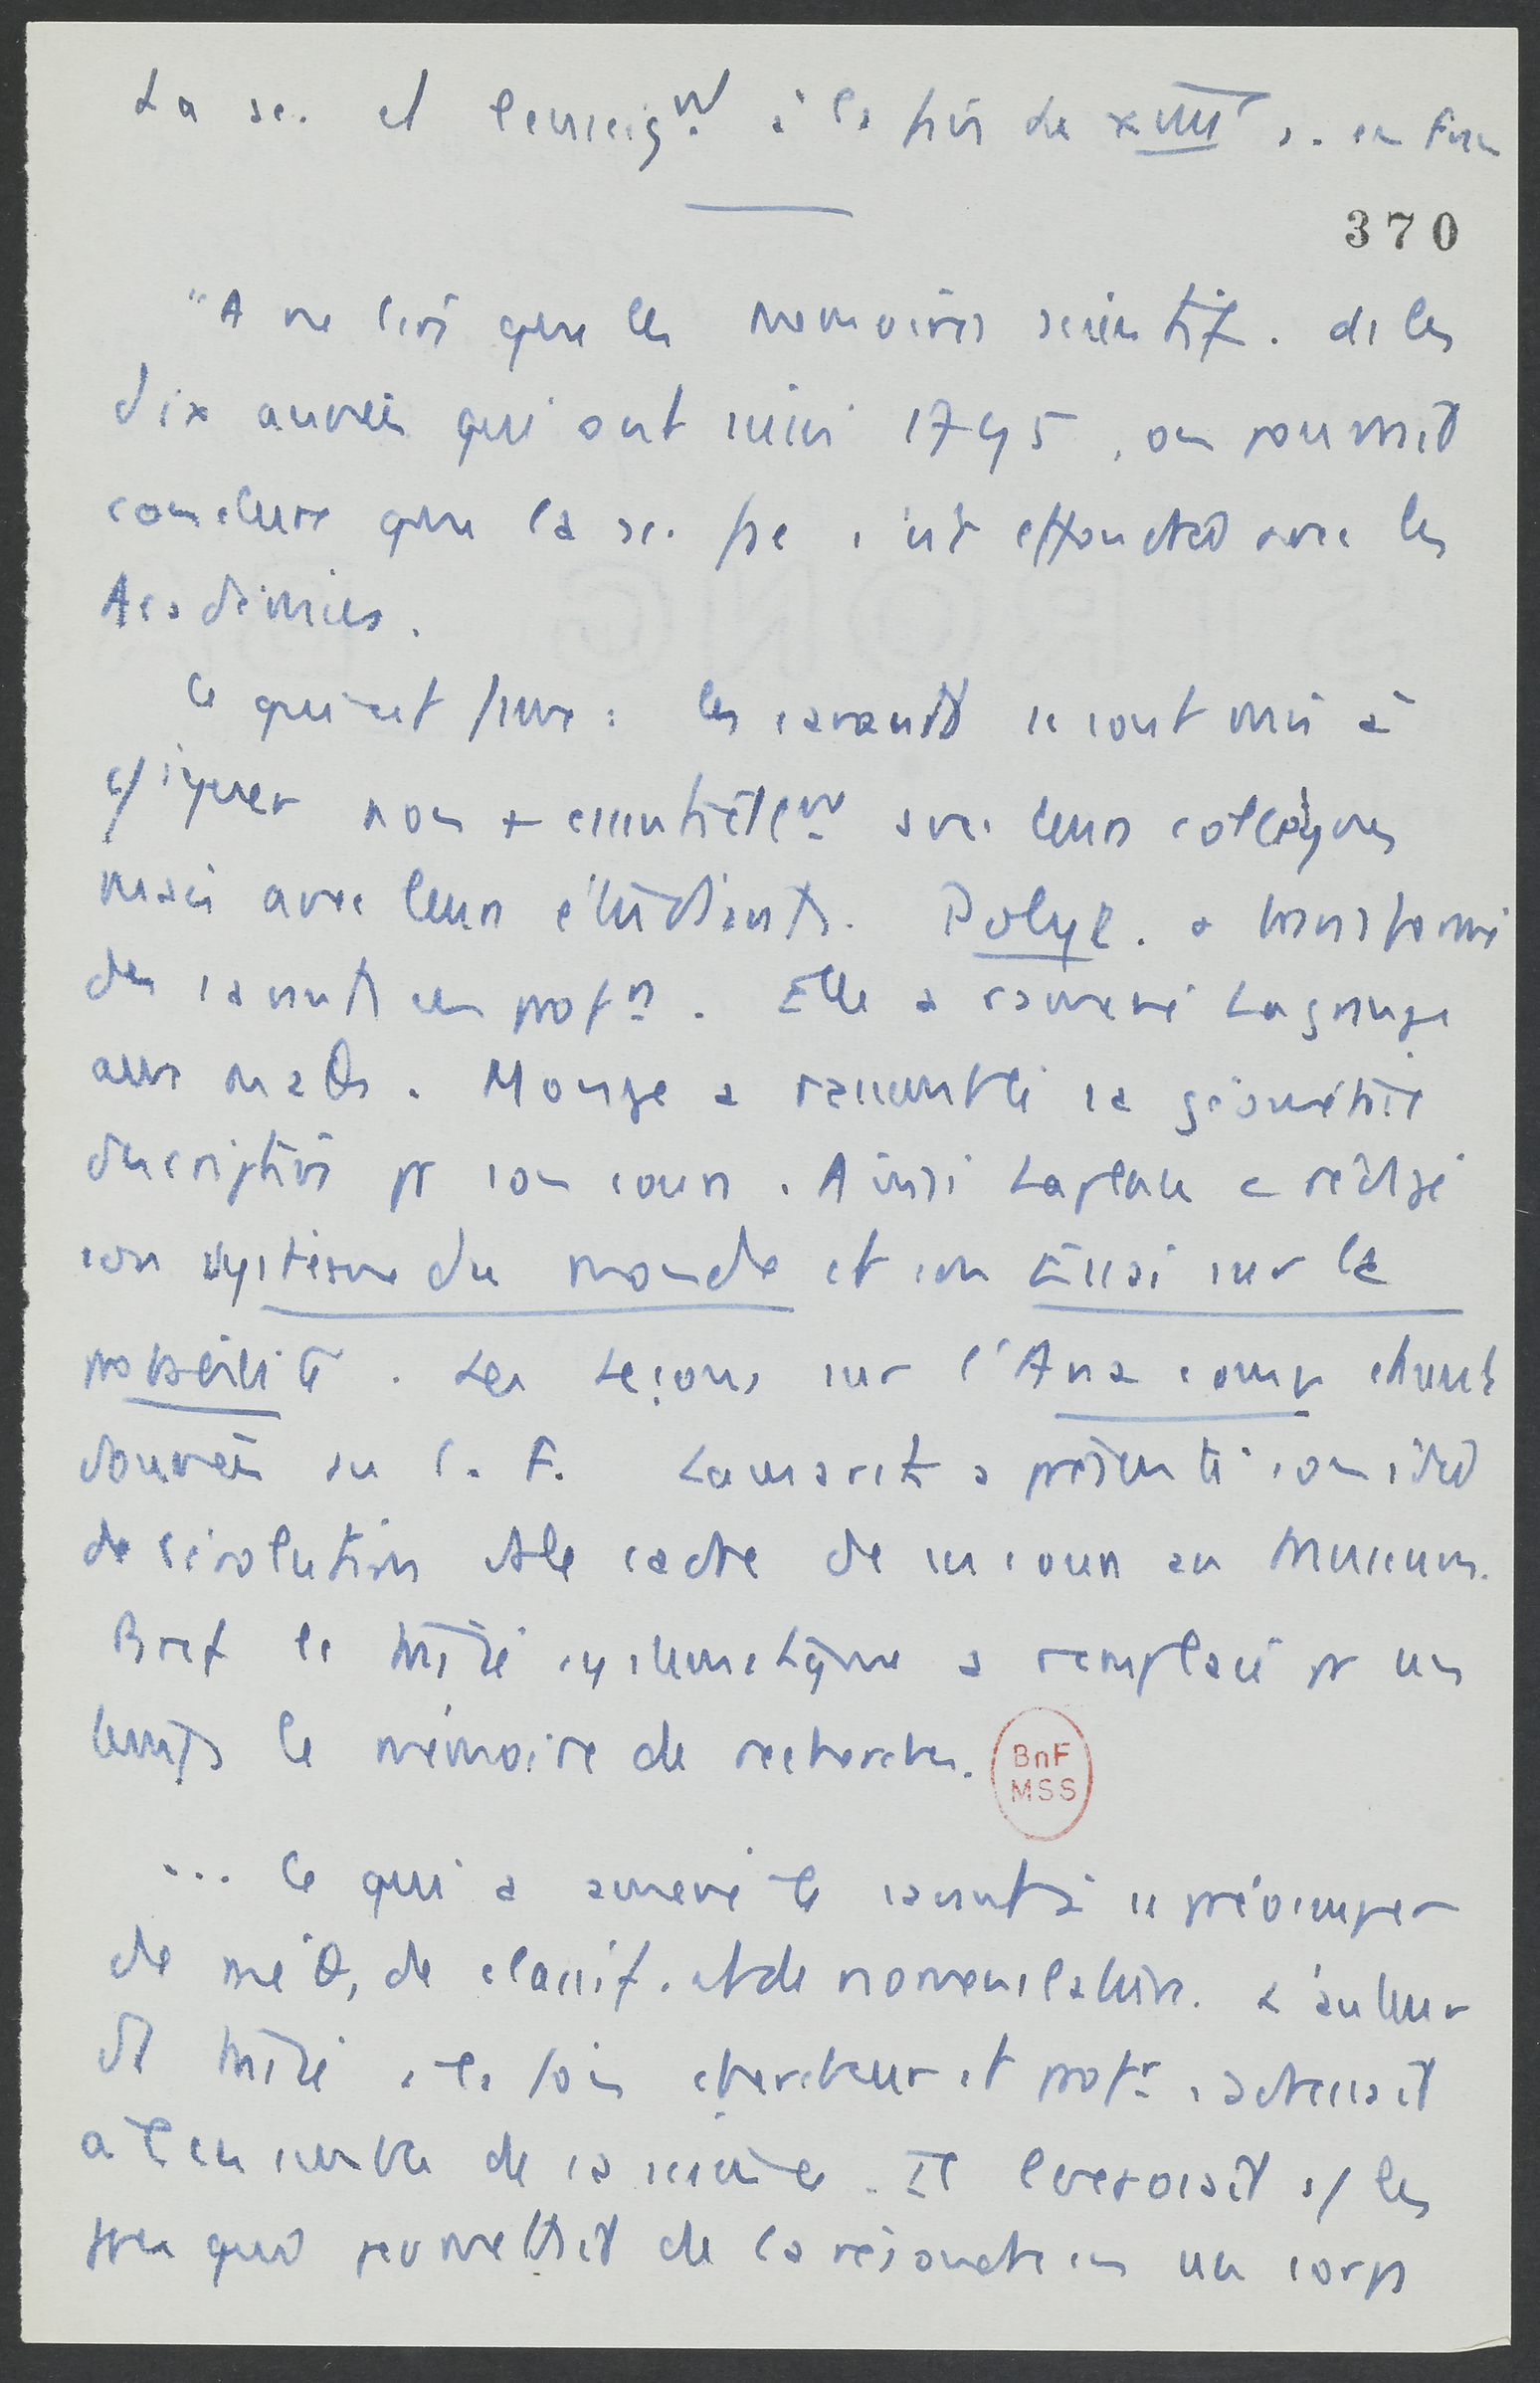 La sc. et l'enseigt à la fin du XVIIIe s. en Fran
370
"A ne lire que les memoires scientif. ds les
dix années qui ont suivi 1795, on pourrait
conclure que la sc. fse s'est effondrée avec les
Académies.
Ce qui est sûr : les savants se sont mis à
non + essentiellemt avec leurs collègues
mais avec leurs étudiants. Polyt. a transformé
des savants en profrs. Elle a ramené Lagrange
aux maths. Monge a rassemblé sa géométrie
descriptive pr son cours. Ainsi Laplace a rédigé
son système du monde et son Essai sur la
probabilité. Les Leçons sur l'Ana comp étaient
données au C. F. Lamarck a présenté son idée
de l'évolution ds le cadre de ses cours au Museum.
Bref le traité systématique a remplacé pr un
temps le mémoire de recherches.
BnF
MSS
... Ce qui a amené le savant à se préoccuper
de méth, de classif. et de nomenclature. L'auteur
de traité à la fois chercheur et profr s'adressait
à l'ensemble de sa science. Il
pea qui permettait de la résoudre en un corps